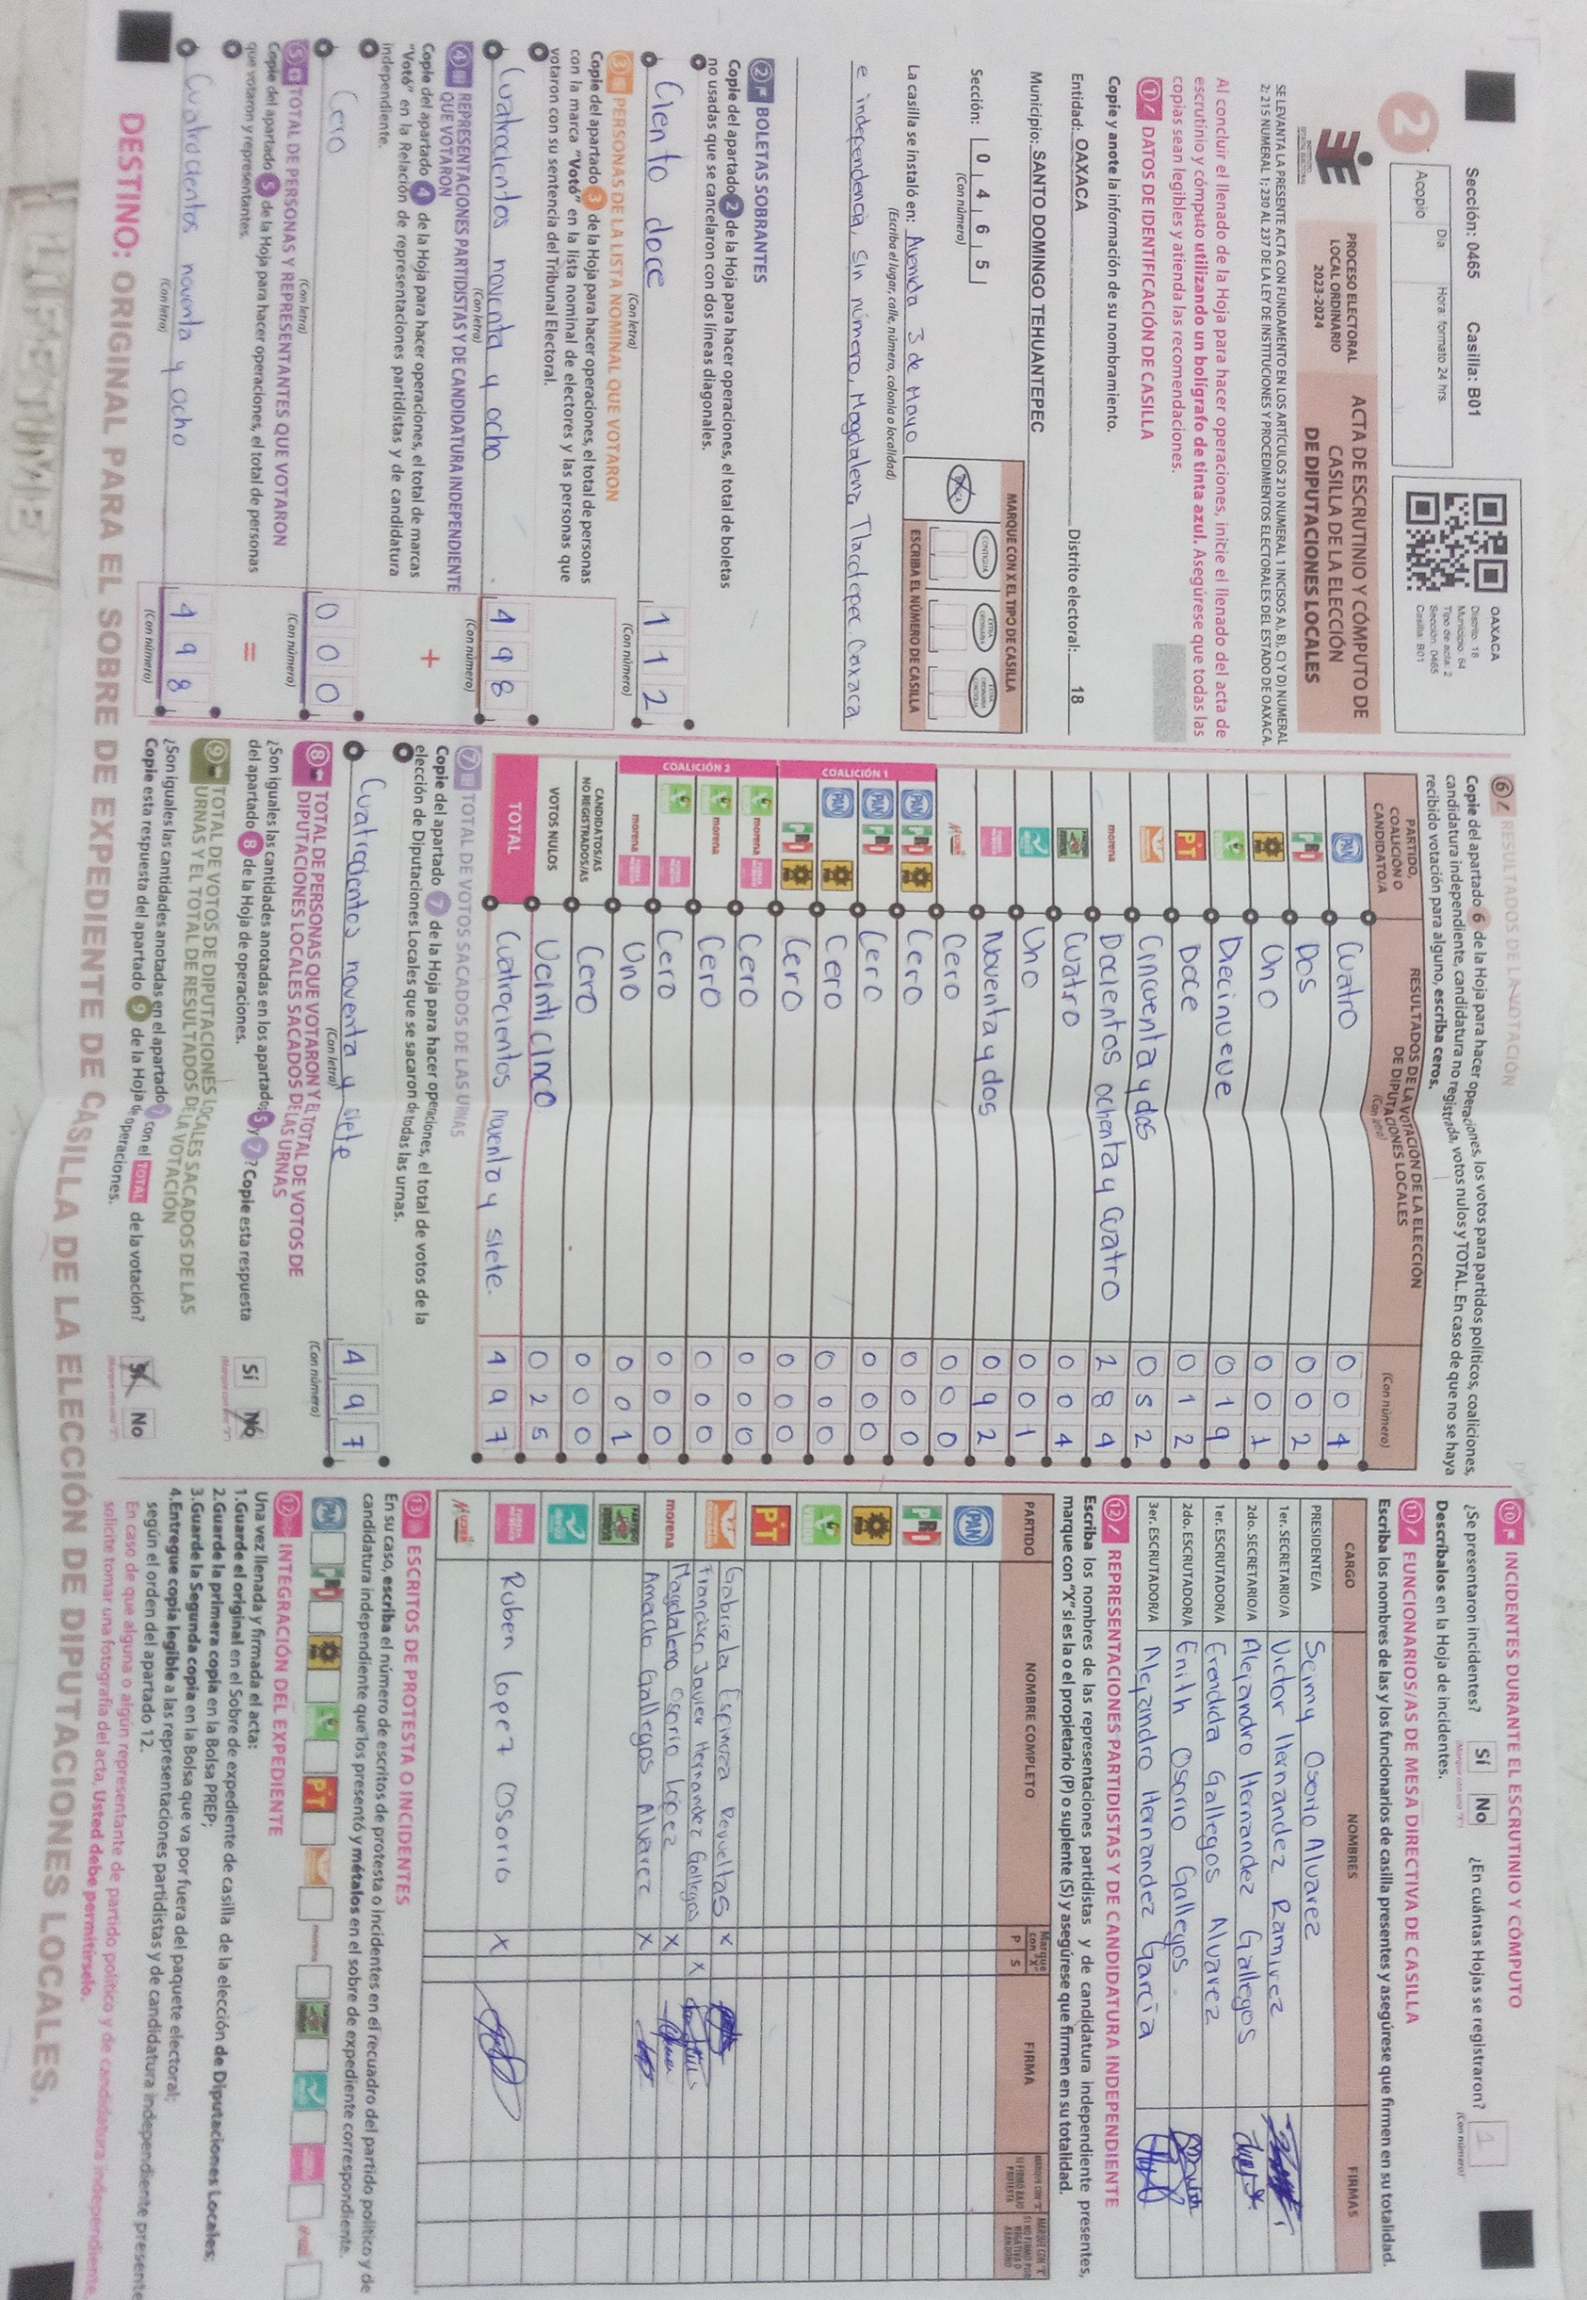 Sección: 0465 Casilla: B01
Día Hora: formato 24 hrs.
Acopio
OAXACA
Distrito: 18
Municipio: 64
Tipo de acta: 2
Sección: 0465
Casilla: B01
2
PROCESO ELECTORAL
LOCAL ORDINARIO
2023-2024
ACTA DE ESCRUTINIO Y CÓMPUTO DE
CASILLA DE LA ELECCIÓN
DE DIPUTACIONES LOCALES
SE LEVANTA LA PRESENTE ACTA CON FUNDAMENTO EN LOS ARTÍCULOS 210 NUMERAL 1 INCISOS A), B), C) Y D) NUMERAL
2; 215 NUMERAL 1; 230 AL 237 DE LA LEY DE INSTITUCIONES Y PROCEDIMIENTOS ELECTORALES DEL ESTADO DE OAXACA.
Al concluir el llenado de la Hoja para hacer operaciones, inicie el llenado del acta de
escrutinio y cómputo utilizando un bolígrafo de tinta azul. Asegúrese que todas las
copias sean legibles y atienda las recomendaciones.
1 DATOS DE IDENTIFICACIÓN DE CASILLA
Copie y anote la información de su nombramiento.
Entidad: OAXACA Distrito electoral: 18
Municipio: SANTO DOMINGO TEHUANTEPEC
Sección: 0 4 6 5
(Con número)
MARQUE CON X EL TIPO DE CASILLA
ESCRIBA EL NÚMERO DE CASILLA
(Escriba el lugar, calle, número, colonia o localidad)
La casilla se instaló en: Avenida 3 de Mayo
e independencia, sin número, Magdalena Tlacotepec, Oaxaca
2 BOLETAS SOBRANTES
Copie del apartado 2 de la Hoja para hacer operaciones, el total de boletas
no usadas que se cancelaron con dos líneas diagonales.
Ciento doce 1 1 2
(Con letra) (Con número)
3 PERSONAS DE LA LISTA NOMINAL QUE VOTARON
Copie del apartado 3 de la Hoja para hacer operaciones, el total de personas
con la marca "Votó" en la lista nominal de electores y las personas que
votaron con su sentencia del Tribunal Electoral.
Cuatrocientos noventa y ocho 4 9 8
(Con letra) (Con número)
4 REPRESENTACIONES PARTIDISTAS Y DE CANDIDATURA INDEPENDIENTE
QUE VOTARON
Copie del apartado 4 de la Hoja para hacer operaciones, el total de marcas
"Votó" en la Relación de representaciones partidistas y de candidatura
independiente.
+
Cero 0 0 0
(Con letra) (Con número)
5 TOTAL DE PERSONAS Y REPRESENTANTES QUE VOTARON
Copie del apartado 5 de la Hoja para hacer operaciones, el total de personas
que votaron y representantes.
=
Cuatrocientos noventa y ocho 4 9 8
(Con letra) (Con número)
6 RESULTADOS DE LA VOTACIÓN
Copie del apartado 6 de la Hoja para hacer operaciones, los votos para partidos políticos, coaliciones,
candidatura independiente, candidatura no registrada, votos nulos y TOTAL. En caso de que no se haya
recibido votación para alguno, escriba ceros.
PARTIDO,
COALICIÓN O
CANDIDATO/A
RESULTADOS DE LA VOTACIÓN DE LA ELECCIÓN
DE DIPUTACIONES LOCALES
(Con letra) (Con número)
PAN Cuatro 0 0 4
PRI Dos 0 0 2
Uno 0 0 1
Diecinueve 0 1 9
PT Doce 0 1 2
Cincuenta y dos 0 5 2
morena Docientos ochenta y cuatro 2 8 4
Cuatro 0 0 4
Uno 0 0 1
Noventa y dos 0 9 2
Cero 0 0 0
COALICIÓN 1
PAN PRI Cero 0 0 0
PAN PRI Cero 0 0 0
PAN Cero 0 0 0
PRI Cero 0 0 0
COALICIÓN 2
morena Cero 0 0 0
morena Cero 0 0 0
Cero 0 0 0
morena Uno 0 0 1
CANDIDATOS/AS
NO REGISTRADOS/AS Cero 0 0 0
VOTOS NULOS Veinticinco 0 2 5
TOTAL Cuatrocientos noventa y siete. 4 9 7
7 TOTAL DE VOTOS SACADOS DE LAS URNAS
Copie del apartado 7 de la Hoja para hacer operaciones, el total de votos de la
elección de Diputaciones Locales que se sacaron de todas las urnas.
Cuatrocientos noventa y siete 4 9 7
(Con letra) (Con número)
8 TOTAL DE PERSONAS QUE VOTARON Y EL TOTAL DE VOTOS DE
DIPUTACIONES LOCALES SACADOS DE LAS URNAS
¿Son iguales las cantidades anotadas en los apartados 5 y 7? Copie esta respuesta
del apartado 8 de la Hoja de operaciones.
Sí No
9 TOTAL DE VOTOS DE DIPUTACIONES LOCALES SACADOS DE LAS
URNAS Y EL TOTAL DE RESULTADOS DE LA VOTACIÓN
¿Son iguales las cantidades anotadas en el apartado 7 con el TOTAL de la votación?
Copie esta respuesta del apartado 9 de la Hoja de operaciones.
Sí No
10 INCIDENTES DURANTE EL ESCRUTINIO Y CÓMPUTO
¿Se presentaron incidentes? Sí No ¿En cuántas Hojas se registraron? 1
(Marque con una "X") (Con número)
Descríbalos en la Hoja de incidentes.
11 FUNCIONARIOS/AS DE MESA DIRECTIVA DE CASILLA
Escriba los nombres de las y los funcionarios de casilla presentes y asegúrese que firmen en su totalidad.
CARGO NOMBRES FIRMAS
PRESIDENTE/A Seimy Osorio Alvarez
1er. SECRETARIO/A Victor Hernandez Ramirez
2do. SECRETARIO/A Alejandro Hernandez Gallegos
1er. ESCRUTADOR/A Erandida Gallegos Alvarez
2do. ESCRUTADOR/A Enith Osorio Gallegos.
3er. ESCRUTADOR/A Alejandro Hernandez García
12 REPRESENTACIONES PARTIDISTAS Y DE CANDIDATURA INDEPENDIENTE
Escriba los nombres de las representaciones partidistas y de candidatura independiente presentes,
marque con "X" si es la o el propietario (P) o suplente (S) y asegúrese que firmen en su totalidad.
PARTIDO NOMBRE COMPLETO Marque con "X" P S FIRMA
PAN
PRI
PT
Gabriela Espinoza Revueltas X
Francisco Javier Hernandez Gallegos X
morena Magdaleno Osorio López X
Amado Gallegos Alvarez X
Ruben Lopez Osorio X
13 ESCRITOS DE PROTESTA O INCIDENTES
En su caso, escriba el número de escritos de protesta o incidentes en el recuadro del partido político y de
candidatura independiente que los presentó y métalos en el sobre de expediente correspondiente.
PAN PRI PT morena
INTEGRACIÓN DEL EXPEDIENTE
Una vez llenada y firmada el acta:
1.Guarde el original en el Sobre de expediente de casilla de la elección de Diputaciones Locales;
2.Guarde la primera copia en la Bolsa PREP;
3.Guarde la Segunda copia en la Bolsa que va por fuera del paquete electoral;
4.Entregue copia legible a las representaciones partidistas y de candidatura independiente presente
según el orden del apartado 12.
En caso de que alguna o algún representante de partido político y de candidatura independiente
solicite tomar una fotografía del acta, Usted debe permitírselo.
DESTINO: ORIGINAL PARA EL SOBRE DE EXPEDIENTE DE CASILLA DE LA ELECCIÓN DE DIPUTACIONES LOCALES.
LIFETIME